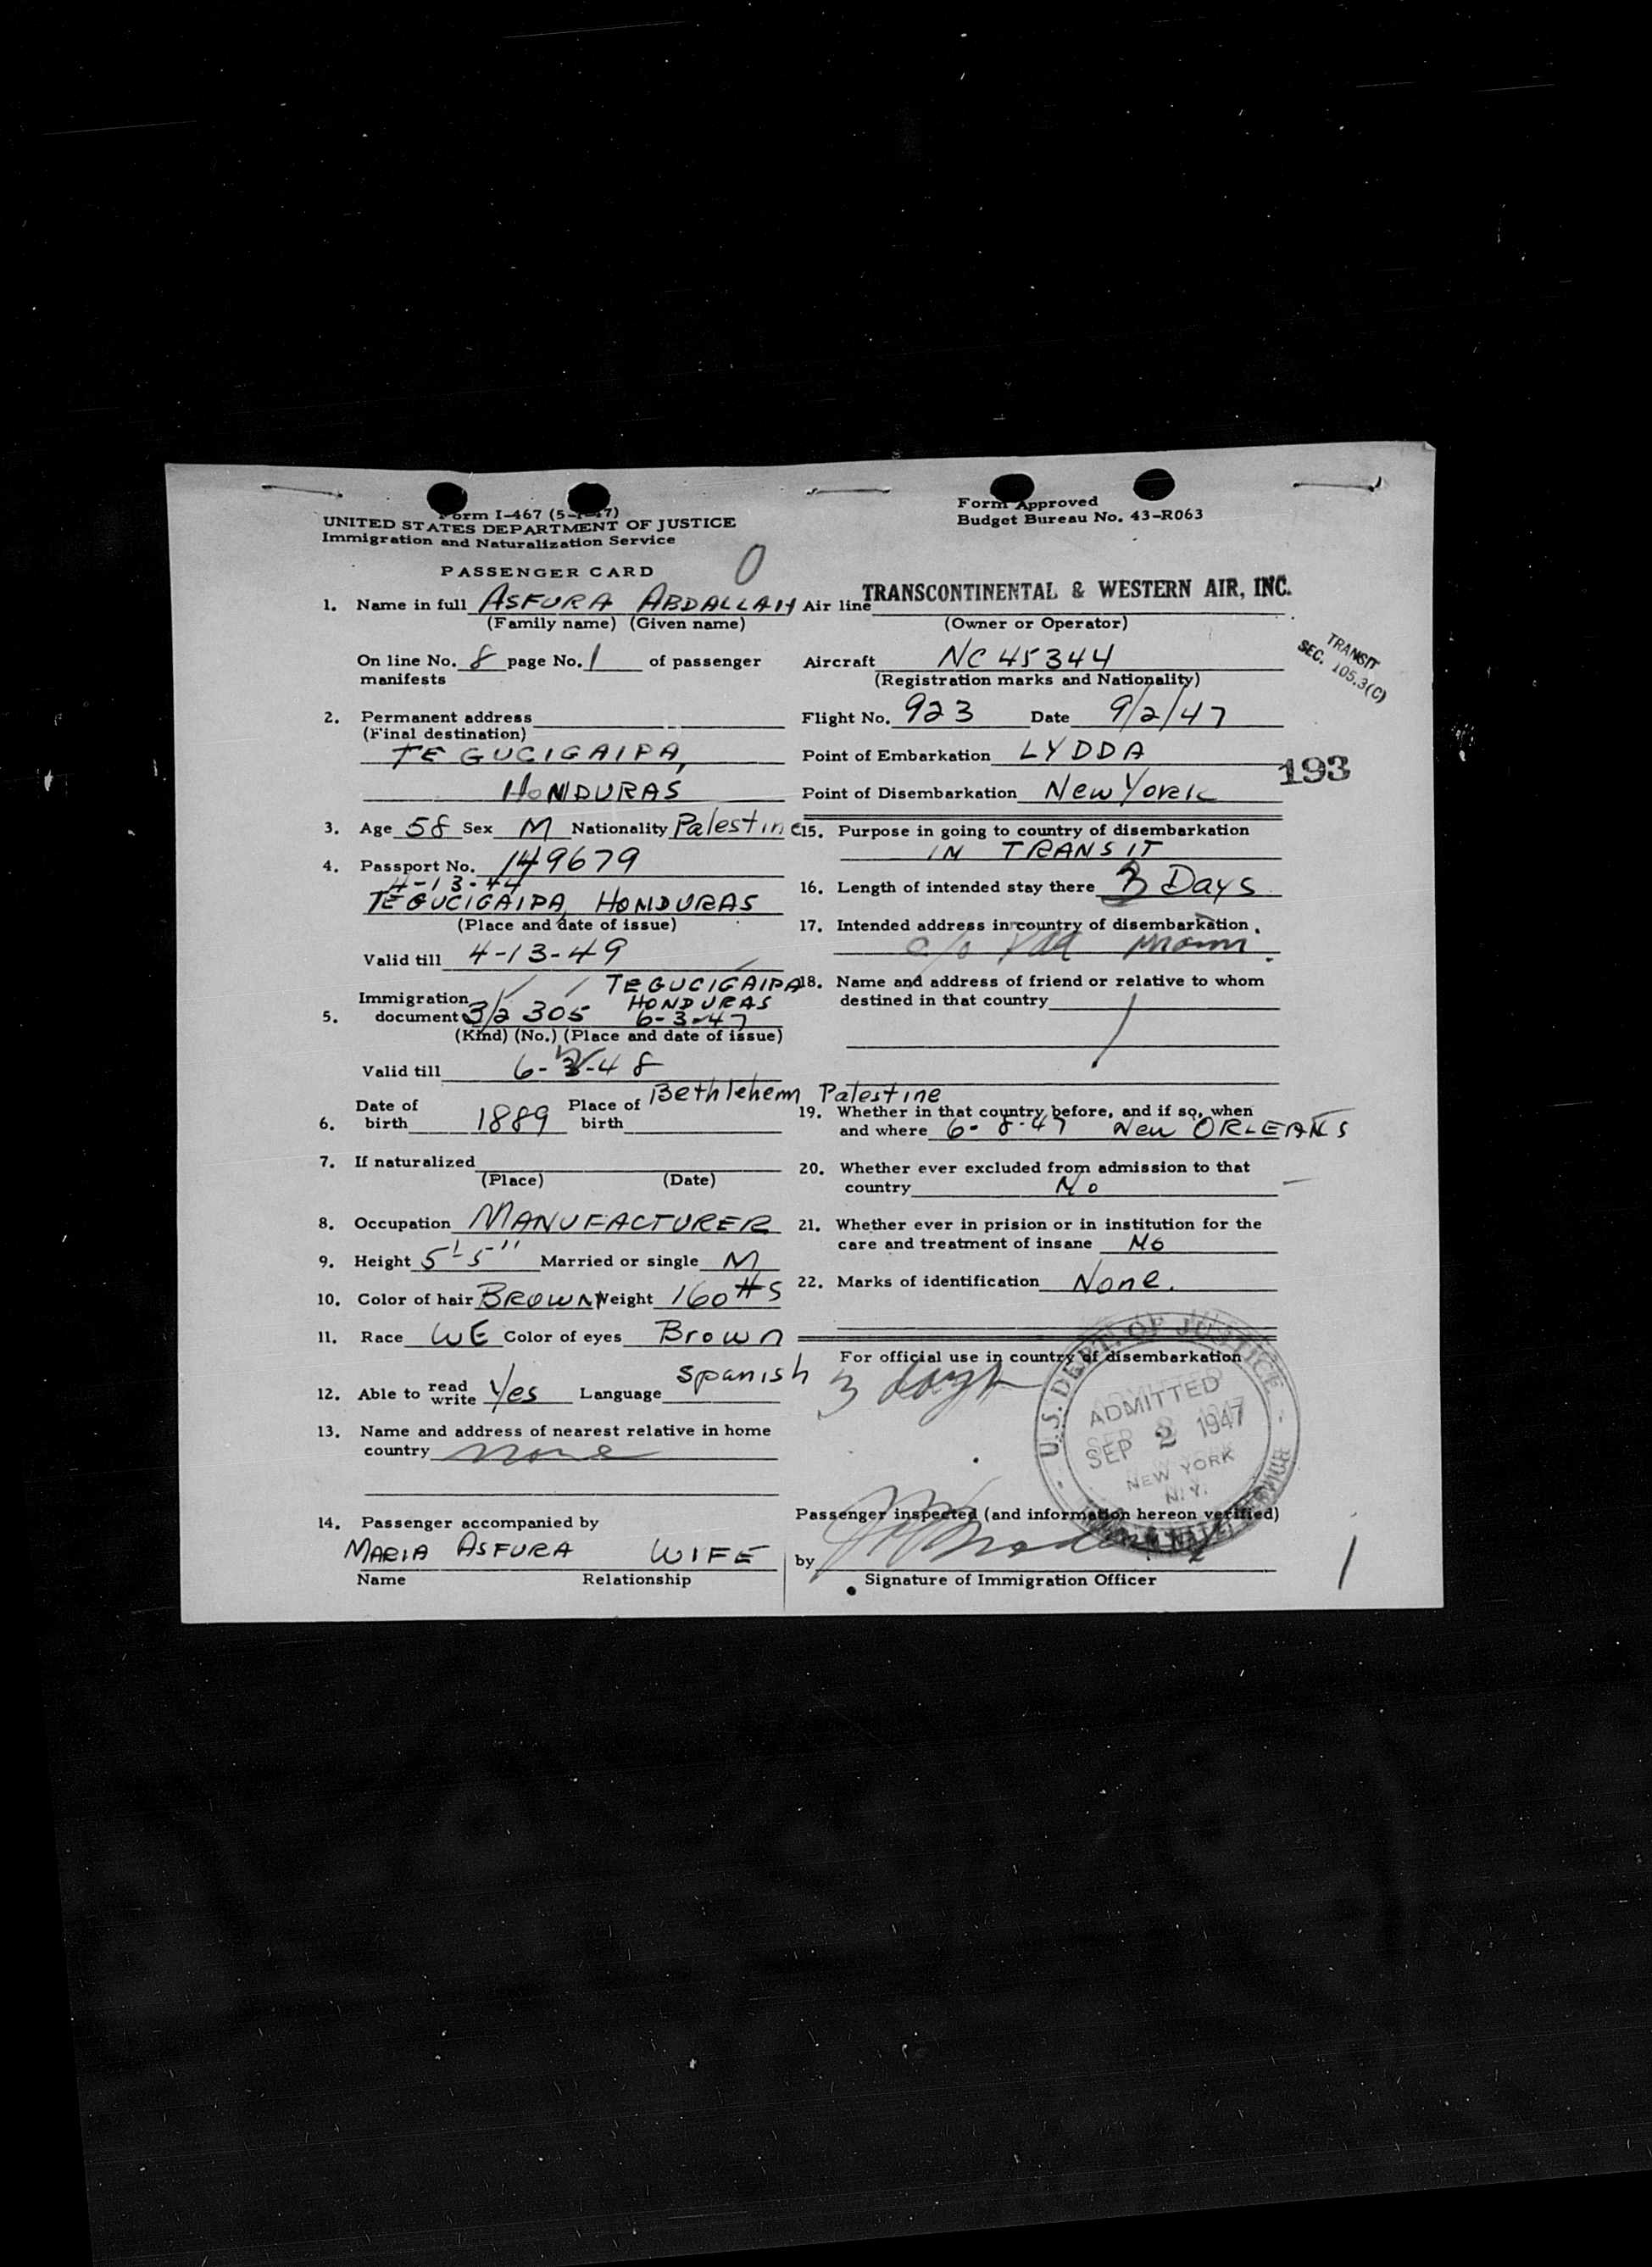 Form I-467
UNITED STATES DEPARTMENT OF JUSTICE
Immigration and Naturalization Service
PASSENGER CARD
O
Form Approved
Budget Bureau No. 43-R063
1. Name in full ASFURA ABDALLAH
(Family name) (Given name)
On line No. 8 page No. 1 of passenger
manifests
2. Permanent address
(Final destination)
TEGUCIGAIPA,
HONDURAS
3. Age 58 Sex M Nationality Palestine
4. Passport No. 149679
4-13-44
TEGUCIGAIPA, HONDURAS
(Place and date of issue)
Valid till 4-13-49
TEGUCIGAIPA
Immigration HONDURAS
5. document 3/2 305 6-3-47
(Kind) (No.) (Place and date of issue)
Valid till 6- -48
Date of Place of Bethlehem Palestine
6. birth 1889 birth
7. If naturalized
(Place) (Date)
8. Occupation MANUFACTURER
9. Height 5'-5" Married or single M
10. Color of hair BROWN Weight 160 #S
11. Race WE Color of eyes Brown
12. Able to read write Yes Language Spanish
13. Name and address of nearest relative in home
country none
14. Passenger accompanied by
MARIA ASFURA WIFE
Name Relationship
Air line TRANSCONTINENTAL & WESTERN AIR, INC.
(Owner or Operator)
Aircraft NC 45344
(Registration marks and Nationality)
TRANSIT
SEC. 105.3(C)
Flight No. 923 Date 9/2/47
Point of Embarkation LYDDA
193
Point of Disembarkation New York
15. Purpose in going to country of disembarkation
IN TRANSIT
16. Length of intended stay there 3 Days
17. Intended address in country of disembarkation
c/o
18. Name and address of friend or relative to whom
destined in that country
19. Whether in that country before, and if so, when
and where 6-8-47 New ORLEANS
20. Whether ever excluded from admission to that
country No
21. Whether ever in prision or in institution for the
care and treatment of insane No
22. Marks of identification None.
For official use in country of disembarkation
3 days
U.S. DEPT. OF JUSTICE
ADMITTED
SEP 2 1947
NEW YORK
N.Y.
Passenger inspected (and information hereon verified)
by
Signature of Immigration Officer
1